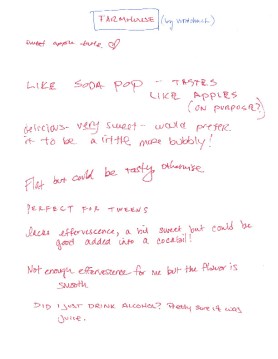 FARMHOUSE (by Woodchuck)
sweet apple taste ♡
LIKE SODA POP - TASTES
LIKE APPLES
(ON PURPOSE?)
delicious - very sweet - would prefer
it to be a little more bubbly!
Flat but could be tasty otherwise
PERFECT FOR TWEENS
lacks effervescence, a bit sweet but could be
good added into a cocktail!
Not enough effervescence for me but the flavor is
smooth
DID I JUST DRINK ALCOHOL? Pretty sure it was
juice.